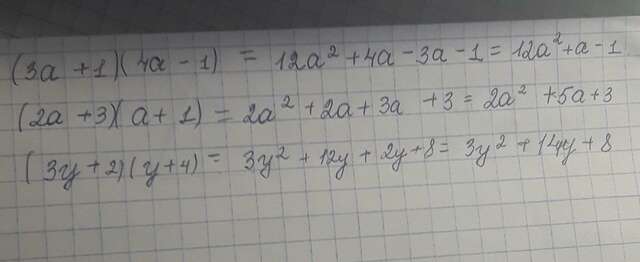 (3a + 1)(4a - 1) = 12a² + 4a - 3a - 1 = 12a² + a - 1
(2a + 3)(a + 1) = 2a² + 2a + 3a + 3 = 2a² + 5a + 3
(3y + 2)(y + 4) = 3y² + 12y + 2y + 8 = 3y² + 14y + 8